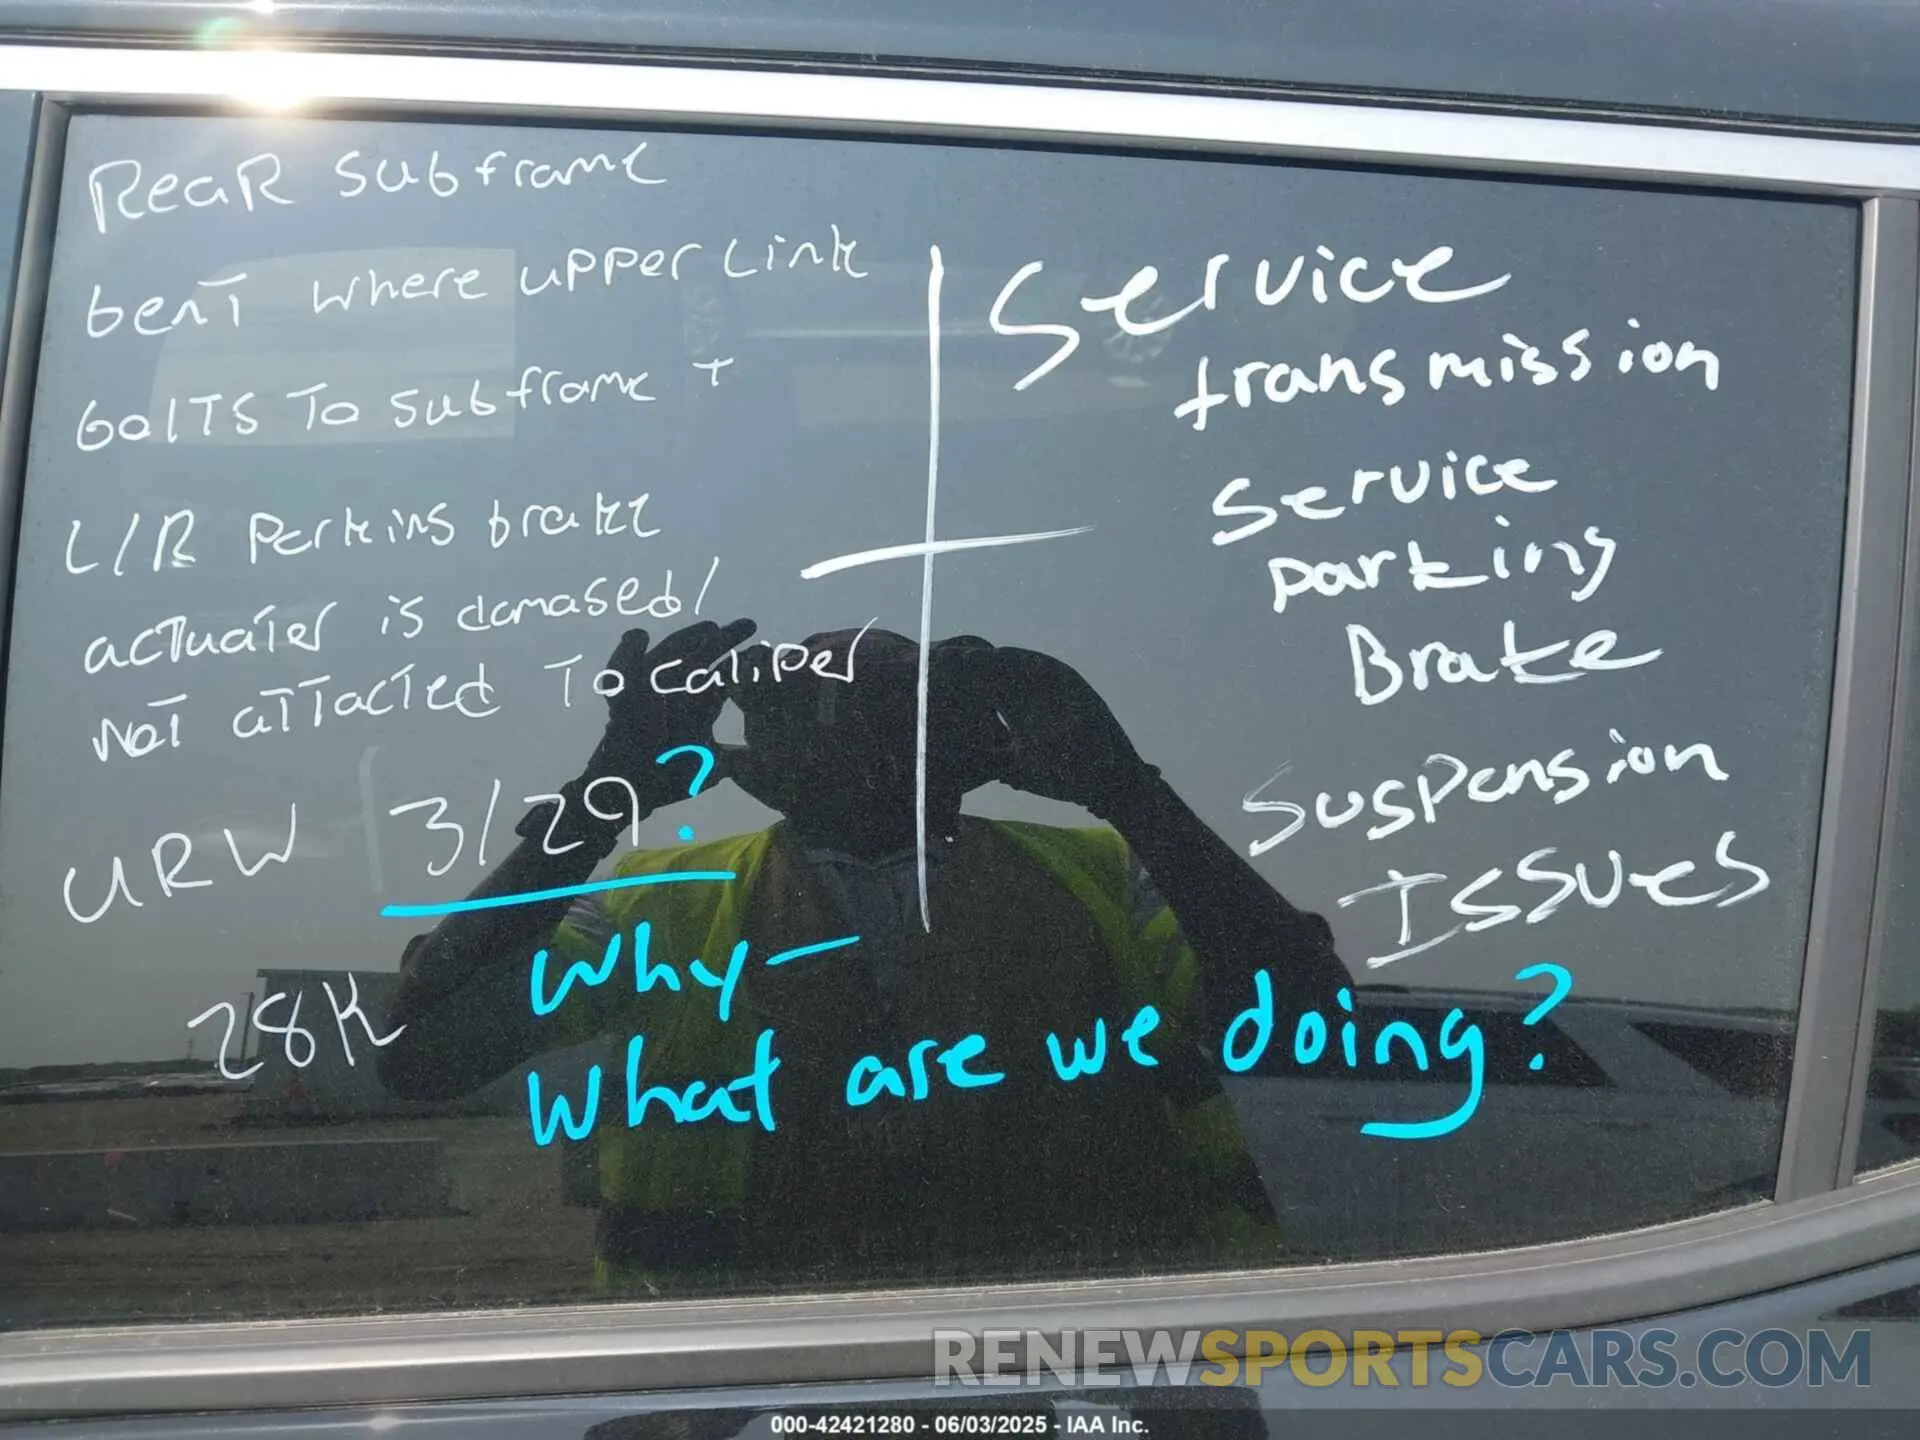 Rear subframe
bent where upper Link
bolts To subframe +
L/R Parking brake
actuater is damased/
not attacted To caliper
URW 3/29?
28K
Service
transmission
Service
parking
Brake
Suspension
Issues
Why—
What are we doing?
RENEWSPORTSCARS.COM
000-42421280 - 06/03/2025 - IAA Inc.